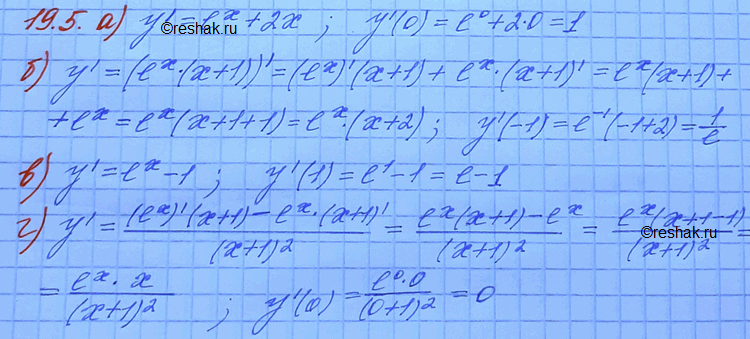 19.5. а) y' = eˣ + 2x ; y'(0) = e⁰ + 2·0 = 1
reshak.ru
б) y' = (eˣ·(x+1))' = (eˣ)'(x+1) + eˣ·(x+1)' = eˣ(x+1) +
+ eˣ = eˣ(x+1+1) = eˣ·(x+2) ; y'(-1) = e⁻¹(-1+2) = 1/e
в) y' = eˣ - 1 ; y'(1) = e¹ - 1 = e - 1
г) y' = ((eˣ)'(x+1) - eˣ·(x+1)')/(x+1)² = (eˣ(x+1) - eˣ)/(x+1)² = (eˣ(x+1-1))/(x+1)² =
reshak.ru
= (eˣ·x)/(x+1)² ; y'(0) = (e⁰·0)/(0+1)² = 0